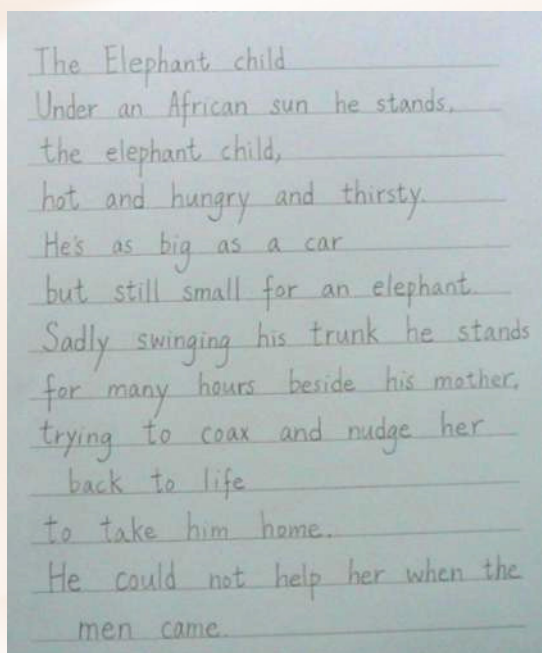 The Elephant child
Under an African sun he stands,
the elephant child,
hot and hungry and thirsty.
He's as big as a car
but still small for an elephant.
Sadly swinging his trunk he stands
for many hours beside his mother,
trying to coax and nudge her
back to life
to take him home.
He could not help her when the
men came.